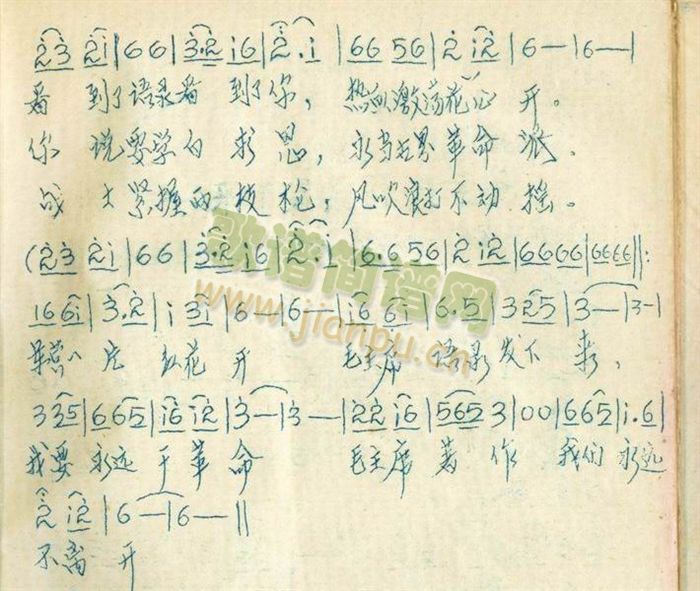 2̇3̇ 2̇i|66|3̇·2̇ i6|2̇·i|66 56|2̇ i2̇|6—|6—|
看到了语录看到了你，热血激荡花心开。
你说要学白求恩，永当世界革命派、
战士紧握的枝枪，风吹浪打不动摇。
(2̇3̇ 2̇i|66|3̇·2̇ i6|2̇·i|6·6 56|2̇ i2̇|6666|6666‖:
i6 6i|3̇·2̇|i 3̇i|6—|6—|i6 6|6·5|3 25|3—|3—|
红花开 毛主席语录发下来，
3 35|6 65|i6 i2̇|3̇—|3—|2̇2̇ i6|565 3|00|6 65|i·6|
我要永远干革命 毛主席著作 我们永远
2̇ i2̇|6—|6—‖
不离开
歌谱简谱网
www.jianpu.cn